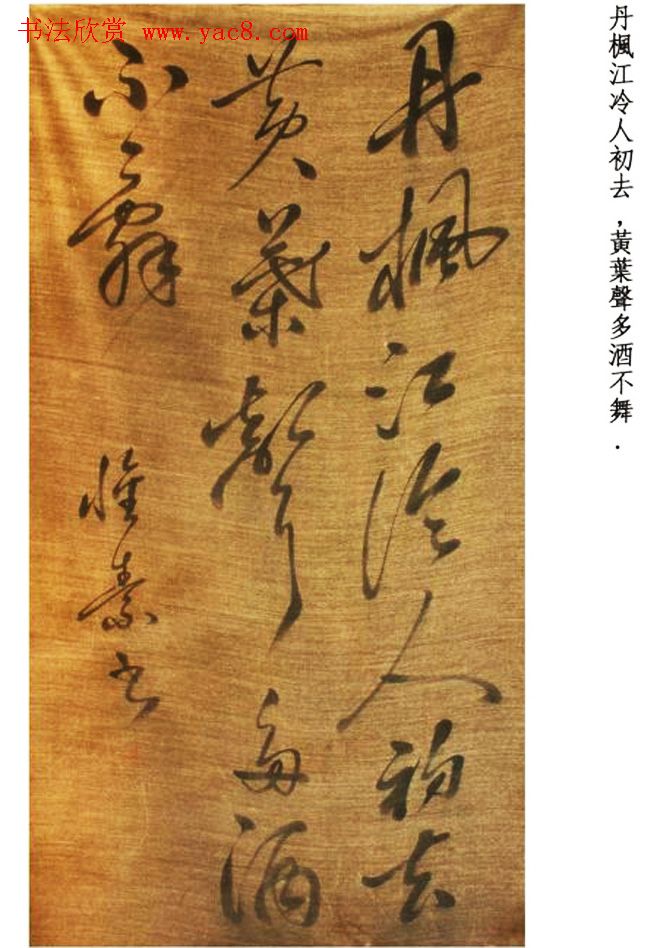 书法欣赏 www.yac8.com
丹楓江冷人初去
黃葉聲多酒
不辭
素書
丹楓江冷人初去,黃葉聲多酒不舞.